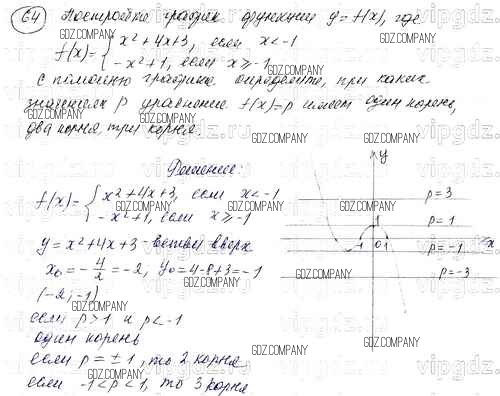 64 Постройте график функции y = f(x), где
f(x) = { x² + 4x + 3, если x < -1
-x² + 1, если x ≥ -1
С помощью графика определите, при каких
значениях P уравнение f(x) = p имеет один корень,
два корня, три корня.
Решение:
f(x) = { x² + 4x + 3, если x < -1
-x² + 1, если x ≥ -1
y = x² + 4x + 3 - ветви вверх
x₀ = -4/2 = -2, y₀ = 4 - 8 + 3 = -1
(-2; -1)
если p > 1 и p < -1
один корень
если p = ± 1, то 2 корня
если -1 < p < 1, то 3 корня
y
p = 3
1
p = 1
-1 0 1
x
p = -1
p = -3
GDZ.COMPANY
vipgdz.ru